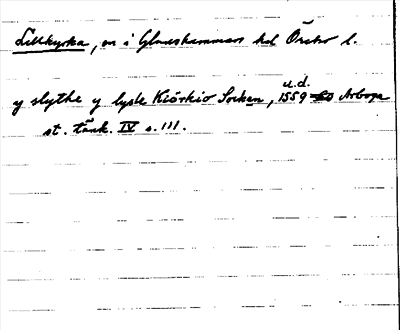 Lillkyrka, sn i Glanshammars hd Örebro l.
u.d.
y slythe y lysle Kiörkio Socken, 1559 Arboga
st. tänk. IV s. 111.